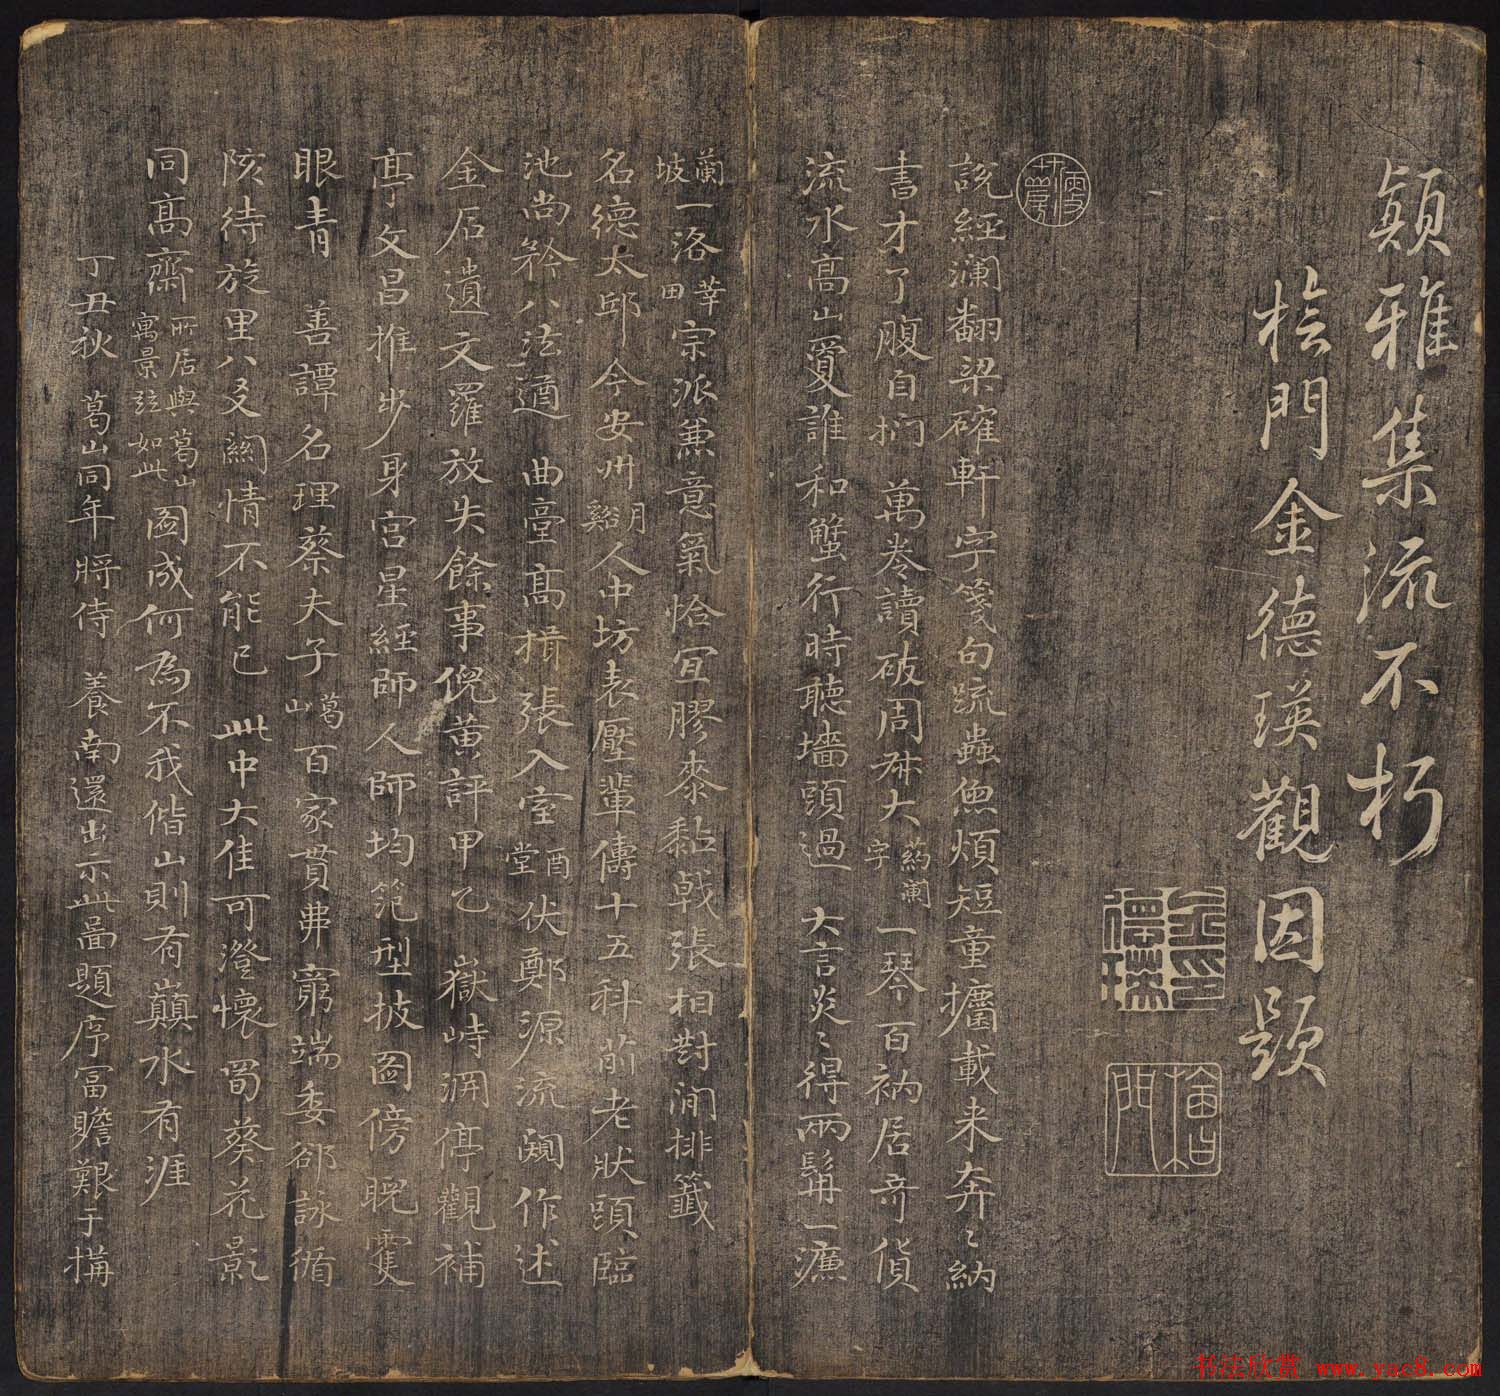 穎雅集流不朽
桧門金德瑛觀因題
說經瀾翻梁確軒字箋句疏蟲魚煩短童攜載来奔〻納
書才了腹自捫萬卷讀破周冰大葯瀾字一琴百衲居奇貨
流水高山夐誰和蟹行時聽墻頭過大言炎〻得兩髯一濂
蘭坡一洛莘田宗派兼意氣恰宜膠黍黏戟張相對澗排籤
名德太邱今安州月谿人中坊表壓輩儔十五科前老狀頭臨
池尚矜八法遒曲臺高揖張入室酉堂伏鄭源流闕作述
金石遺文羅放失餘事倪黄評甲乙嶽峙淵渟觀補
亭文昌推步身宮星經師人師均笵型披圖傍睨雙
眼青善譚名理蔡夫子葛山百家貫弗窮端委郤詠循
陔待旋里八爻關情不能已此中大隹可澄懷蜀葵花影
同高齋所居與葛山寓景話如此圖成何為不我偕山則有巔水有涯
丁丑秋葛山同年將侍養南還出示此啚題序冨贍艱于搆
金德瑛印
桧門
书法欣赏 www.yac8.com